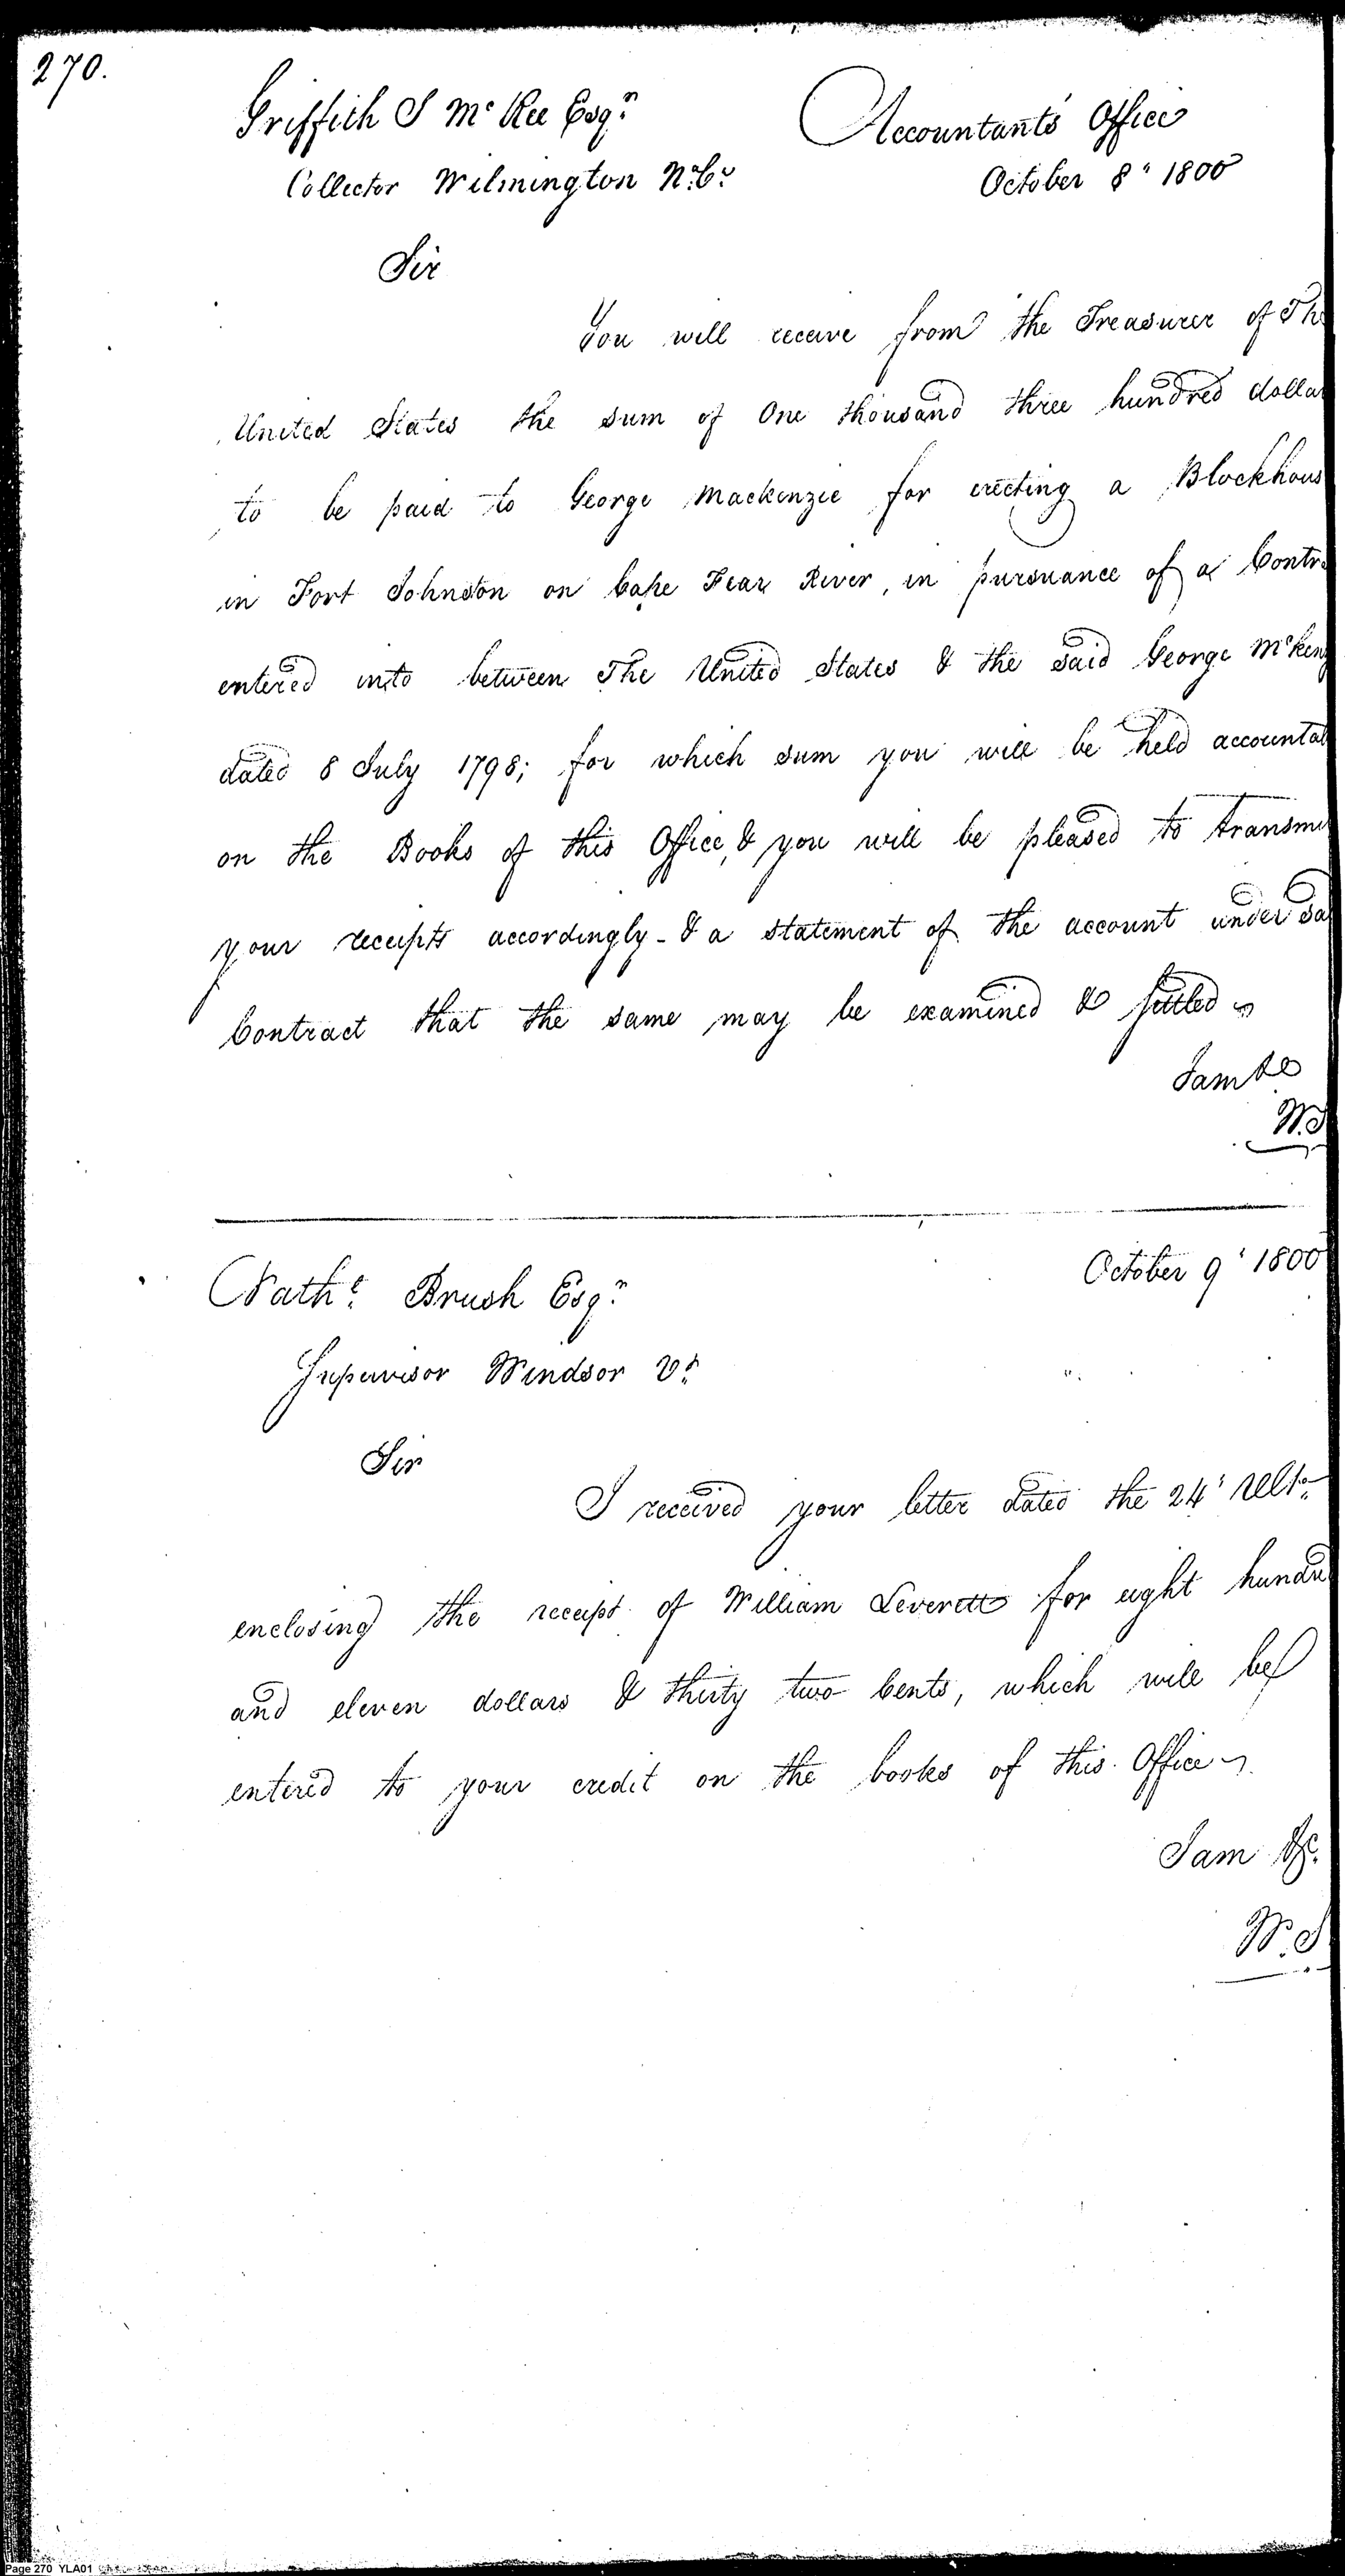 270.
Griffith J McRee Esqr
Accountants Office
Collector Wilmington N.C.
October 8" 1800
Sir
You will receive from the Treasurer of The
United States the sum of One thousand three hundred dolla
to be paid to George Mackenzie for erecting a Blockhous
in Fort Johnston on Cape Fear River, in pursuance of a Contra
entered into between The United States & the said George McKenz
dated 8 July 1798; for which sum you will be held accountab
on the Books of this Office, & you will be pleased to transmi
your receipts accordingly - & a statement of the account under sa
Contract that the same may be examined & settled
I am &c
W.S
October 9' 1800
Nathl. Brush Esqr
Supervisor Windsor Vt
Sir
I received your letter dated the 24' Ulto.
enclosing the receipt of William Leverett for eight hundre
and eleven dollars & thirty two Cents, which will be
entered to your credit on the books of this Office
I am &c.
W.S
Page 270 YLA01